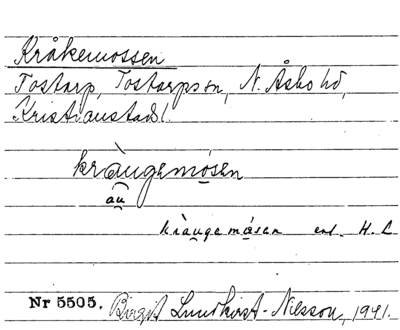 Kråkemossen
Tostarp, Tostarps sn, N. Åsbo hd,
Kristianstads l.
kràungemo̱sen
àu̯
kràungemåsen enl. H. L
Nr 5505. Birgit Lundkvist-Nilsson, 1941.